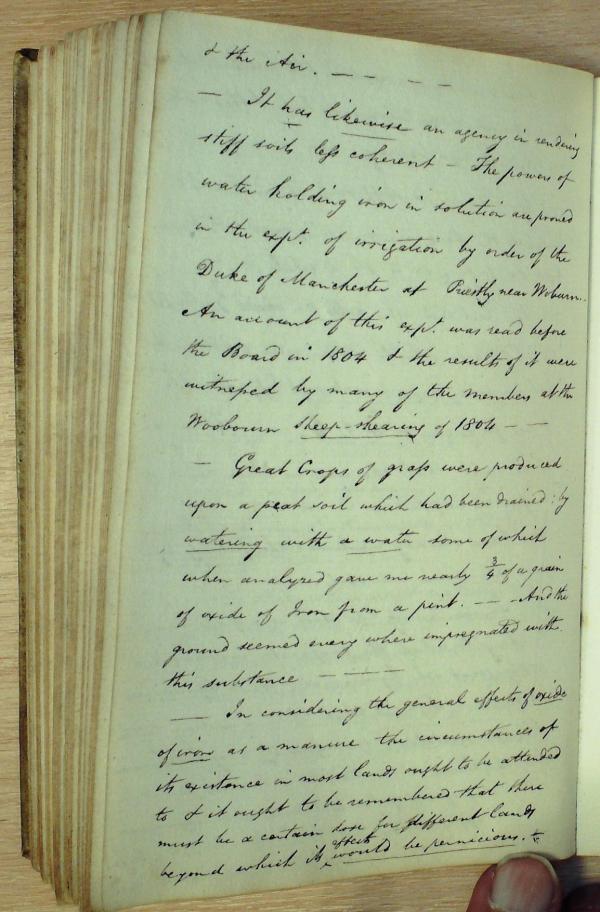 & the Air. — — — —
— It has likewise an agency in rendering
stiff soils less coherent — The powers of
water holding iron in solution are proved
in the expt. of irrigation by order of the
Duke of Manchester at Priestly near Woburn.
An account of this expt. was read before
the Board in 1804 & the results of it were
witnessed by many of the members at the
Woobourn sheep-shearing of 1804 — —
— Great Crops of grass were produced
upon a peat soil which had been drained: by
watering with a water some of which
when analyzed gave me nearly 3/4 of a grain
of oxide of Iron from a pint. — — And the
ground seemed every where impregnated with
this substance — — —
— In considering the general effects of oxide
of iron as a manure the circumstances of
its existence in most lands ought to be attended
to & it ought to be remembered that there
must be a certain dose for different lands
beyond which its effects would be pernicious. +